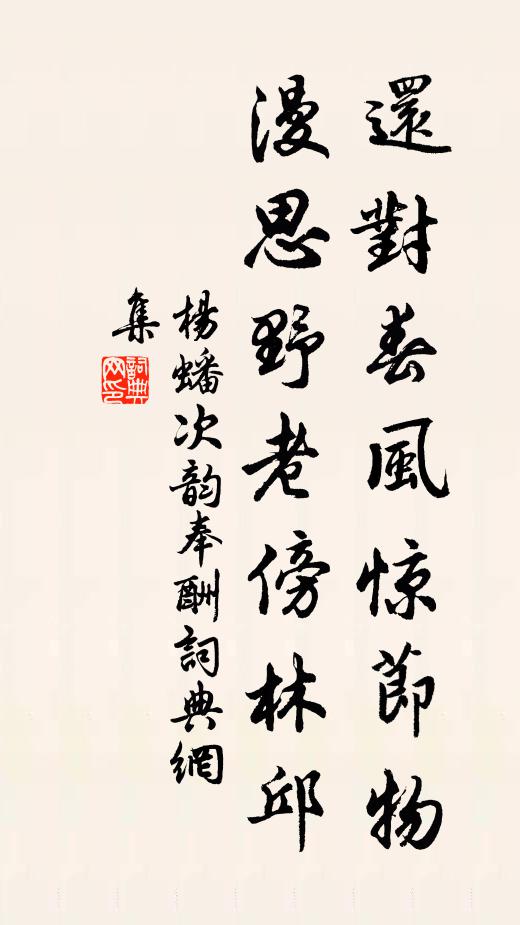 還對春風惊節物
漫思野老傍林邱
楊蟠次韵奉酬詞典網
集
詞典网印